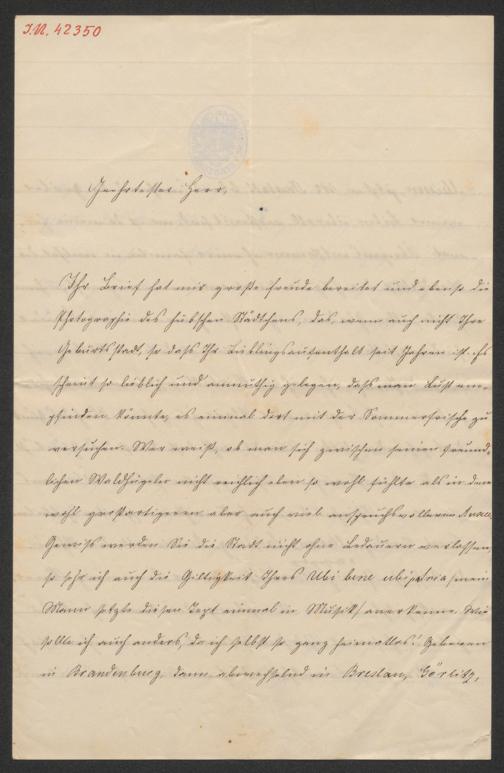 I.N. 42350
Geehrtester Herr,
Ihr Brief hat mir große Freude bereitet und ebenso die
Photographie des hübschen Städtchens, das, wenn auch nicht Ihre
Geburtsstadt, so doch Ihr Lieblingsaufenthalt seit Jahren ist. Es
scheint so lieblich und anmuthig gelegen, daß man Lust em-
pfinden könnte, es einmal dort mit der Sommerfrische zu
versuchen. Wer weiß, ob man sich zwischen seinen freund-
lichen Waldhügeln nicht reichlich eben so wohl fühlte als in dem
wohl großartigeren aber auch viel anspruchsvolleren
Gewiß werden Sie die Stadt nicht ohne Bedauern verlassen,
so sehr ich auch die Giltigkeit Ihres Ubi bene ubi patria (mein
Mann setzte diesen Text einmal in Musik) anerkenne. Wie
sollte ich auch anders, da ich selbst so ganz heimatlos! Geboren
in Brandenburg, dann abwechselnd in Breslau, Görlitz,